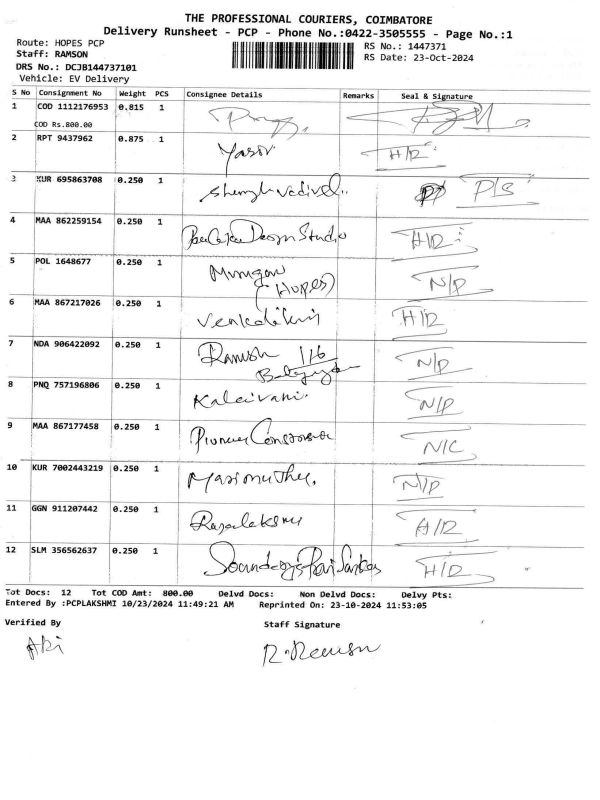 THE PROFESSIONAL COURIERS, COIMBATORE
Delivery Runsheet - PCP - Phone No.:0422-3505555 - Page No.:1
Route: HOPES PCP
RS No.: 1447371
Staff: RAMSON
RS Date: 23-Oct-2024
DRS No.: DCJB144737101
Vehicle: EV Delivery
S No Consignment No Weight PCS Consignee Details Remarks Seal & Signature
1 COD 1112176953 0.815 1
COD Rs.800.00
2 RPT 9437962 0.875 1 Yasir H/R
3 KUR 695863708 0.250 1 P/S
4 MAA 862259154 0.250 1 Design Studio H/R
5 POL 1648677 0.250 1 Murugan N/P
(Hopes)
6 MAA 867217026 0.250 1 H/R
7 NDA 906422092 0.250 1 Ramesh 116 N/P
8 PNQ 757196806 0.250 1 Kalaivani N/P
9 MAA 867177458 0.250 1 N/C
10 KUR 7002443219 0.250 1 Marimuthu. N/P
11 GGN 911207442 0.250 1 H/R
12 SLM 356562637 0.250 1 H/R
Tot Docs: 12 Tot COD Amt: 800.00 Delvd Docs: Non Delvd Docs: Delvy Pts:
Entered By :PCPLAKSHMI 10/23/2024 11:49:21 AM Reprinted On: 23-10-2024 11:53:05
Verified By Staff Signature